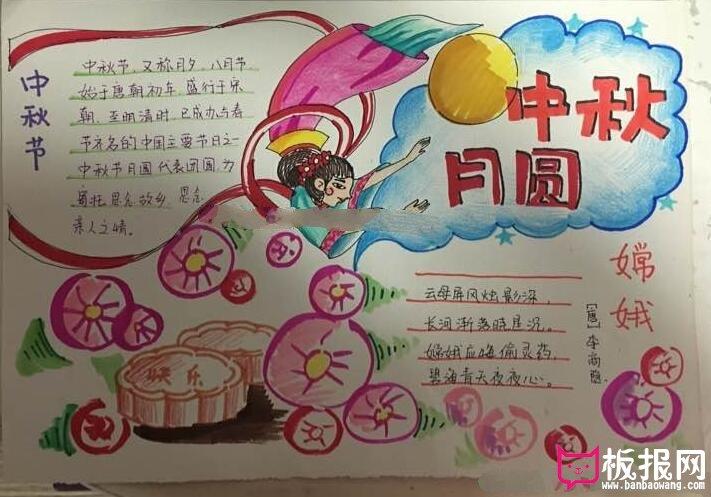 中秋节
中秋节、又称月夕、八月节
始于唐朝初年、盛行于宋
朝、至明清时、已成为与春
节齐名的中国主要节日之一
中秋节月圆代表团圆、为
寄托思念故乡、思念
亲人之情。
中秋
月圆
嫦娥
【唐】李商隐
云母屏风烛影深,
长河渐落晓星沉。
嫦娥应悔偷灵药,
碧海青天夜夜心。
快乐
板报网
www.banbaowang.com